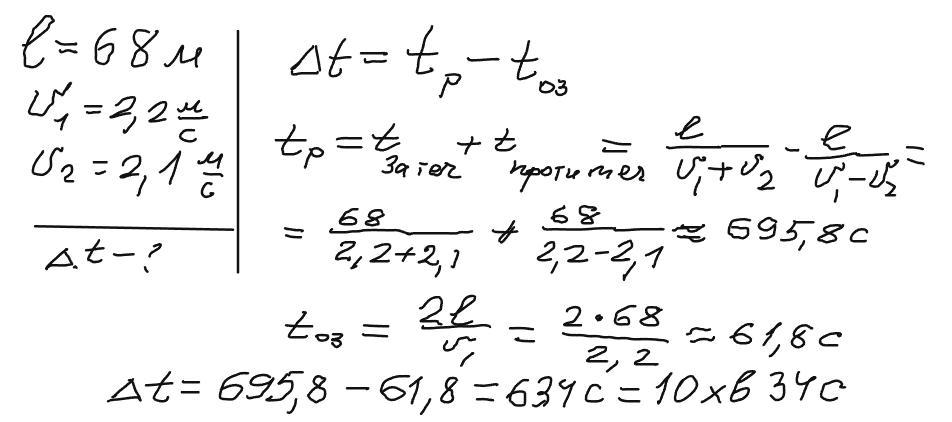 ℓ = 68 м
υ₁ = 2,2 м/с
υ₂ = 2,1 м/с
Δt − ?
Δt = tр − tоз
tр = tза теч + tпроти теч = ℓ/(υ₁+υ₂) - ℓ/(υ₁−υ₂) =
= 68/(2,2+2,1) + 68/(2,2−2,1) ≈ 695,8 с
tоз = 2ℓ/υ₁ = 2·68/2,2 ≈ 61,8 с
Δt = 695,8 − 61,8 = 634 с = 10 хв 34 с